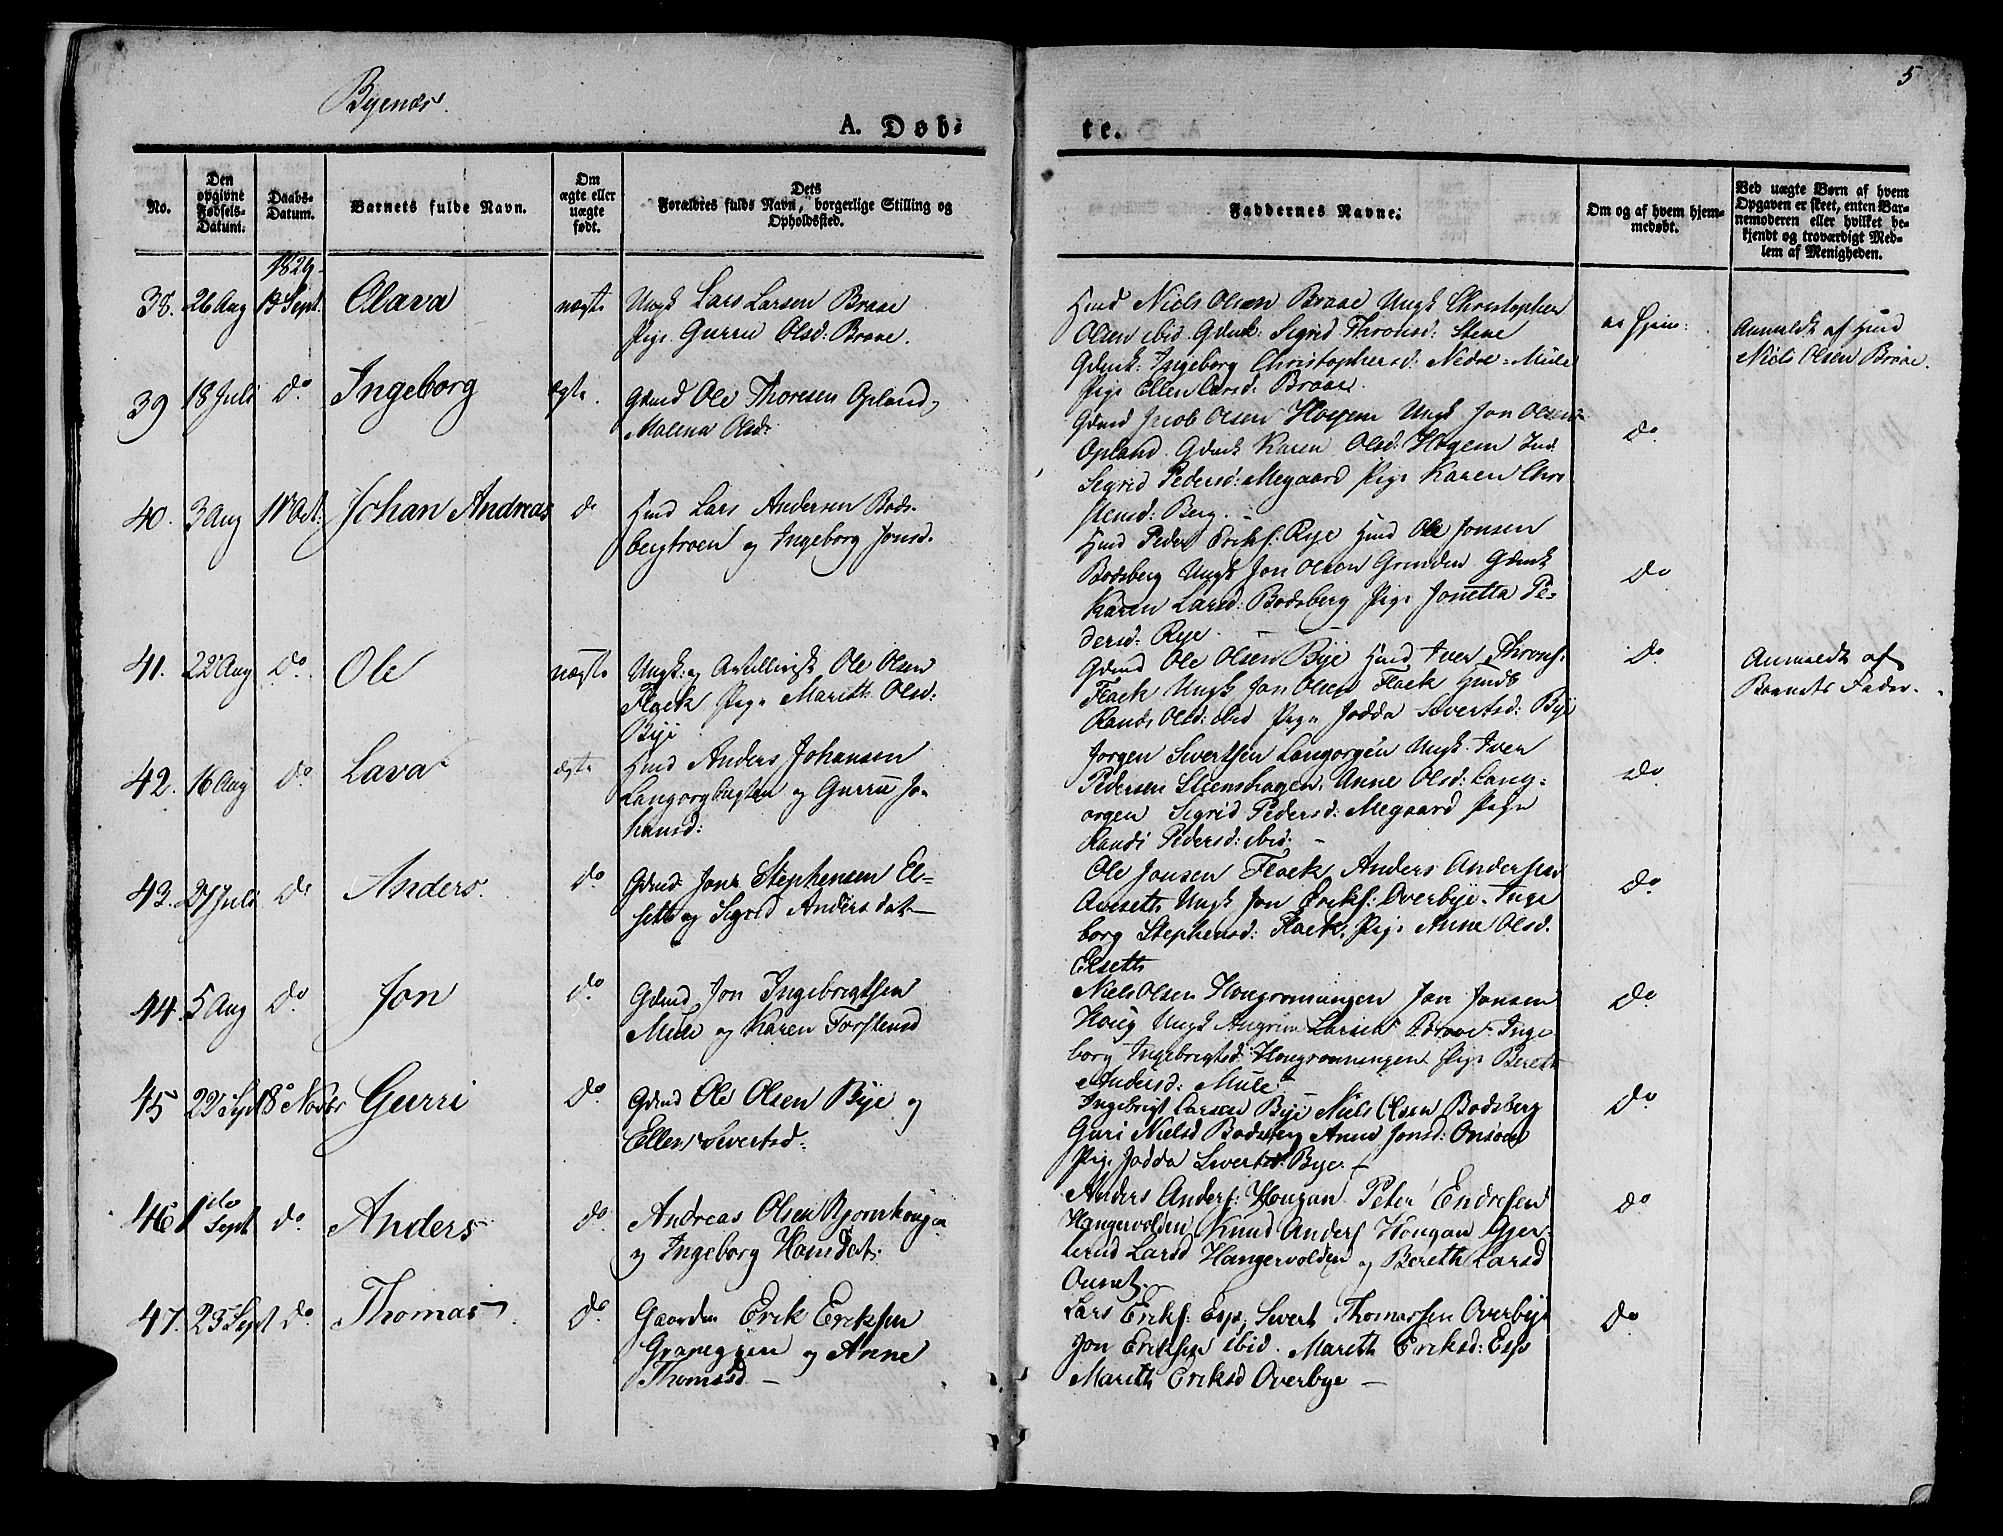 Byenæs.
5
A. Døb-
te.
No.
Den opgivne Fødsels-Datum.
Daabs-Datum.
Barnets fulde Navn.
Om ægte eller uægte født.
Dets Forældres fulde Navn, borgerlige Stilling og Opholdsted.
Faddernes Navne.
Om og af hvem hjem-medøbt.
Ved uægte Børn af hvem Opgaven er skeet, enten Bar-nemoderen eller hvilket be-kjendt og troværdigt Med-lem af Menigheden.
1829.
38. 26 Aug 13 Sept. Olava uægte Ungk Lars Larsen Braae
Pige Gurru Olsd: Braae.
Hmd Niels Olsen Braae Ungk Christopher
Olsen ibid. Gdmk: Sigrid Thronsd: Stene
Gdmk: Ingeborg Christophersd: Nedre-Mule
Pige Ellen Larsd: Braae.
ei Hjem:
Anmeldt af Hmd
Niels Olsen Braae.
39 18 Juli do Ingeborg ægte. Gdmd Ole Thoresen Opland,
Malena Olsd:
Gdmd Jacob Olsen Hogem Ungk Jon Olsen
Opland. Gdmk Karen Olsd: Hogem Ind:
Sigrid Pedersd: Megaard Pige Karen Chri
stensd: Berg.
do
40. 3 Aug 11 Oct: Johan Andreas do Hmd Lars Andersen Bods-
bergtroen og Ingeborg Jonsd.
Hmd Peder Eriks: Rye Hmd Ole Jonsen
Bodsberg Ungk Jon Olson Grinden Gdmk
Karen Larsd: Bodsberg Pige Jonetta Pe-
dersd: Rye.
do
41. 22 Aug do. Ole uægte Ungk: og Artillerisk Ole Olsen
Flaek Pige Mareth Olsd:
Bye
Gdmd Ole Olsen Bye Hmd Iver Throns:
Flaek Ungk Jon Olsen Flaek Hmds
Rande Olsd: ibid Pige Jodda Sivertsd: Bye
do
Anmeldt af
Barnets Fader.
42. 16 Aug do. Lava ægte Hmd Anders Johansen
Langorgbugten og Gurru Jo-
hansd:
Jorgen Sivertsen Langorgen Ungk. Iver
Pedersen Steenshagen, Anne Olsd: Lang-
orgen Sigrid Pedersd: Megaard Pige
Randi Pedersd: ibid:
do
43. 27 Juli do Anders. do Gdmd Jon Stephensen El-
seth og Sigrid Andersdat-
Ole Jonsen Flaek, Anders Andersen
Aveseth Ungk Jon Eriks: Overbye. Inge
borg Stephensd: Flaek, Pige Anne Olsd.
Elseth
do
44. 5 Aug do. Jon do. Gdmd Jon Ingebrigtsen
Mule og Karen Torstensd
Niels Olsen Hougronningen Jon Jonsen
Houg Ungk Angrim Larsen Braae. Inge
borg Ingebrigtsd: Hougronningen Pige Bereth
Andersd: Mule
do
45 22 Sept 8 Novbr Gurri do. Gdmd Ole Olsen Bye og
Ellen Sivertsd:
Ingebrigt Larsen Bye Niels Olsen Bodsberg
Guri Nielsd Bodsberg Anne Jonsd:
Pige Jodda Sivertsd: Bye.
do
46 1do Sept do. Anders do. Andreas Olsen Bjornhougen
og Ingeborg Hansdat:
Anders Anders: Hougan. Peter Endresen
Hangervolden Knud Anders Hougan Gjer-
trud Larsd Hangervolden og Bereth Larsd
Ounet.
do
47. 25 Sept do Thomas do. Gaarden Erik Eriksen
og Anne
Thomasd
Lars Eriks: Esp, Sivert Thomassen Overbye
Jon Eriksen ibid. Mareth Eriksd: Esp
Mareth Eriksd Overbye
do